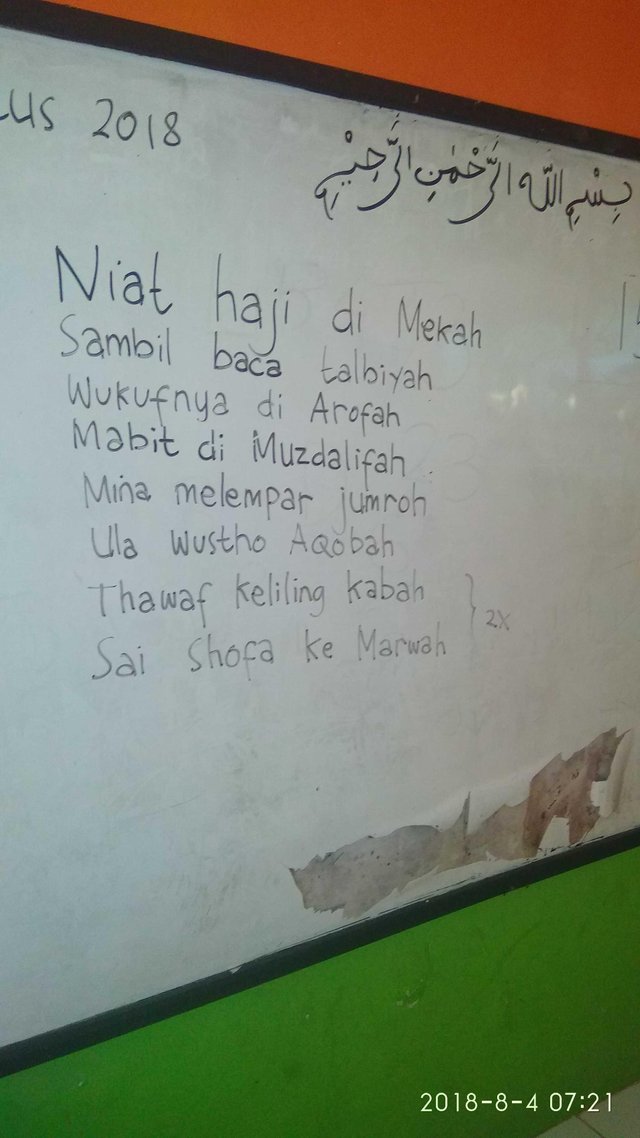 us 2018
بِسْمِ اللّٰهِ الرَّحْمٰنِ الرَّحِيْمِ
Niat haji di Mekah
Sambil baca talbiyah
Wukufnya di Arofah
Mabit di Muzdalifah
Mina melempar jumroh
Ula wustho Aqobah
Thawaf keliling kabah
Sai Shofa ke Marwah
2x
2018-8-4 07:21